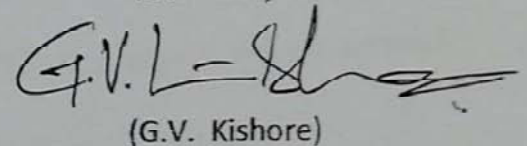 G.V.
(G.V. Kishore)